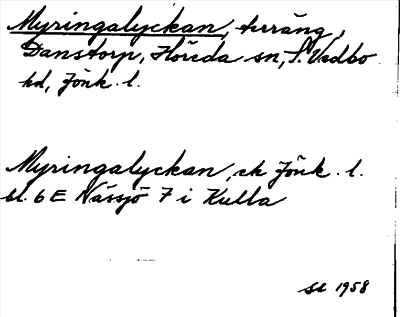 Myringalyckan, terräng,
Danstorp, Höreda sn, S. Vedbo
hd, Jönk. l.
Myringalyckan, ek Jönk. l.
bl. 6 E Nässjö 7 i Kulla
1958